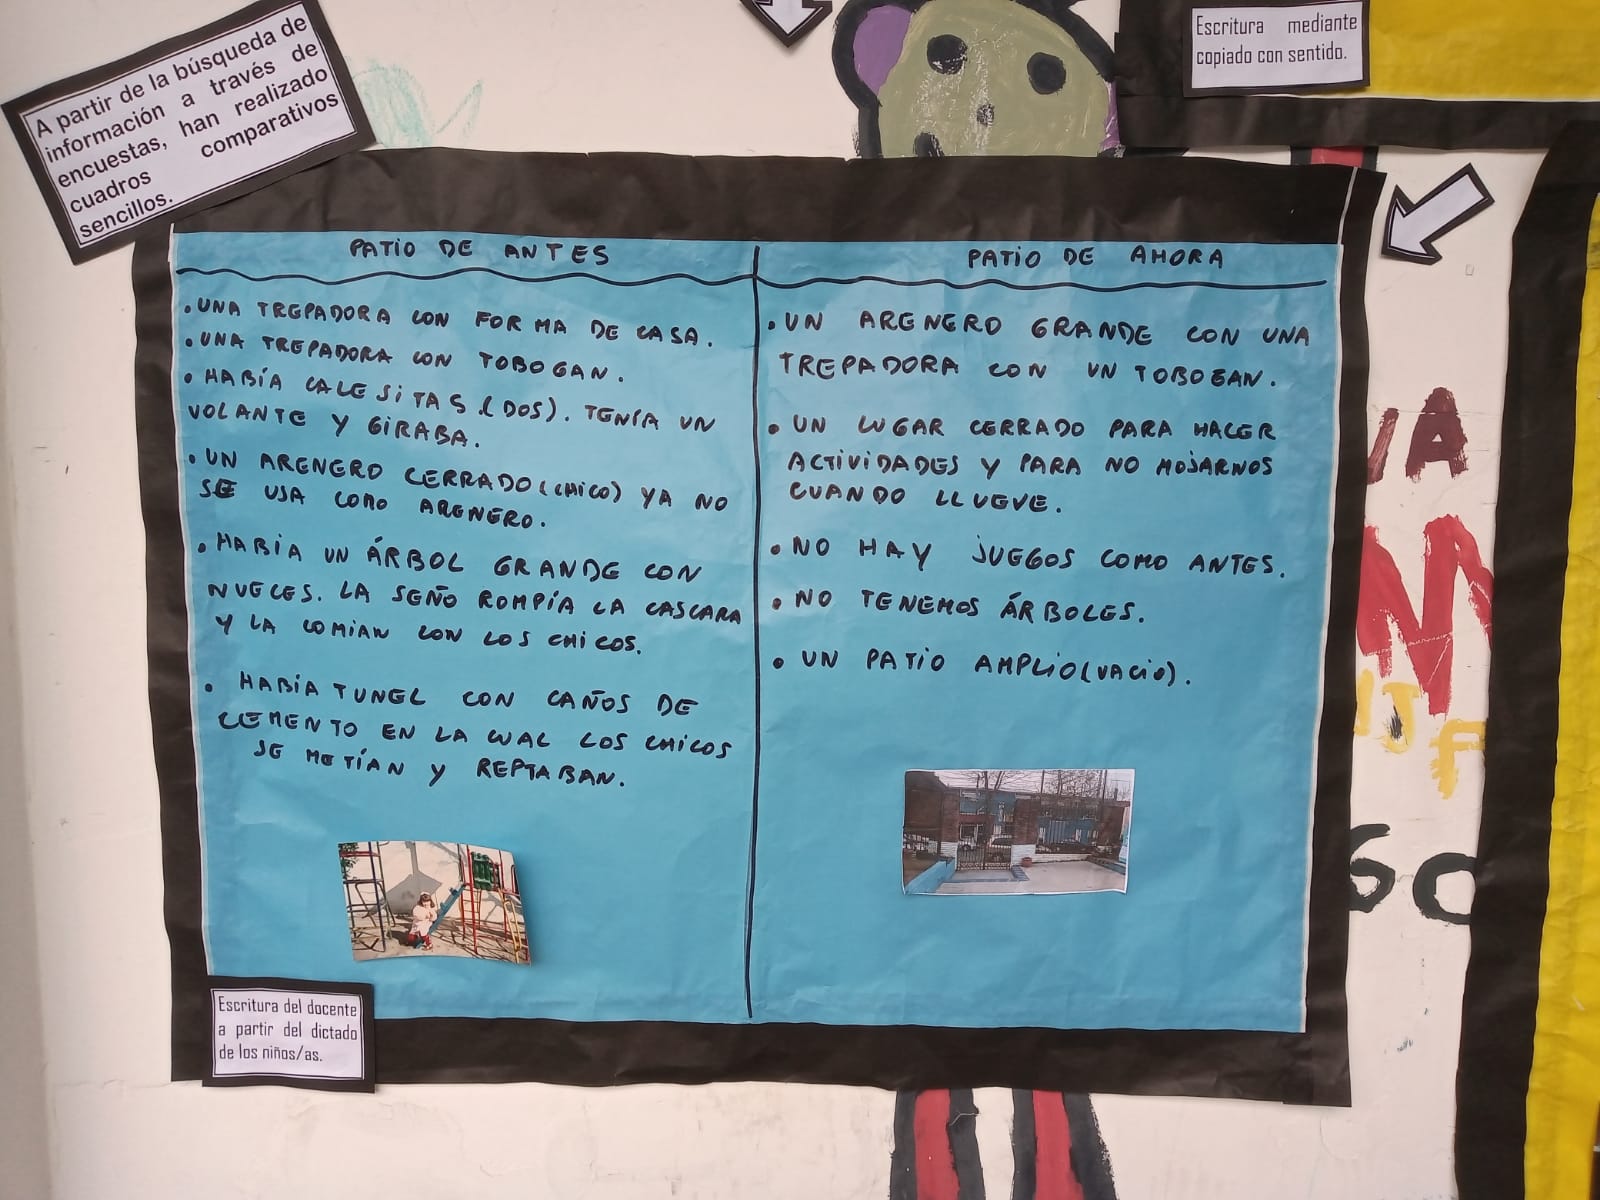 A partir de la búsqueda de
información a través de
encuestas, han realizado
cuadros comparativos
sencillos.
Escritura mediante
copiado con sentido.
PATIO DE ANTES
• UNA TREPADORA CON FORMA DE CASA.
• UNA TREPADORA CON TOBOGAN.
• HABÍA CALESITAS.(DOS). TENÍA UN
VOLANTE Y GIRABA.
• UN ARENERO CERRADO (CHICO) YA NO
SE USA COMO ARENERO.
• HABIA UN ÁRBOL GRANDE CON
NUECES. LA SEÑO ROMPÍA LA CASCARA
Y LA COMIAN CON LOS CHICOS.
• HABÍA TUNEL CON CAÑOS DE
CEMENTO EN LA CUAL LOS CHICOS
SE METÍAN Y REPTABAN.
PATIO DE AHORA
• UN ARENERO GRANDE CON UNA
TREPADORA CON UN TOBOGAN.
• UN LUGAR CERRADO PARA HACER
ACTIVIDADES Y PARA NO MOJARNOS
CUANDO LLUEVE.
• NO HAY JUEGOS COMO ANTES.
• NO TENEMOS ÁRBOLES.
• UN PATIO AMPLIO (VACIO).
Escritura del docente
a partir del dictado
de los niños/as.